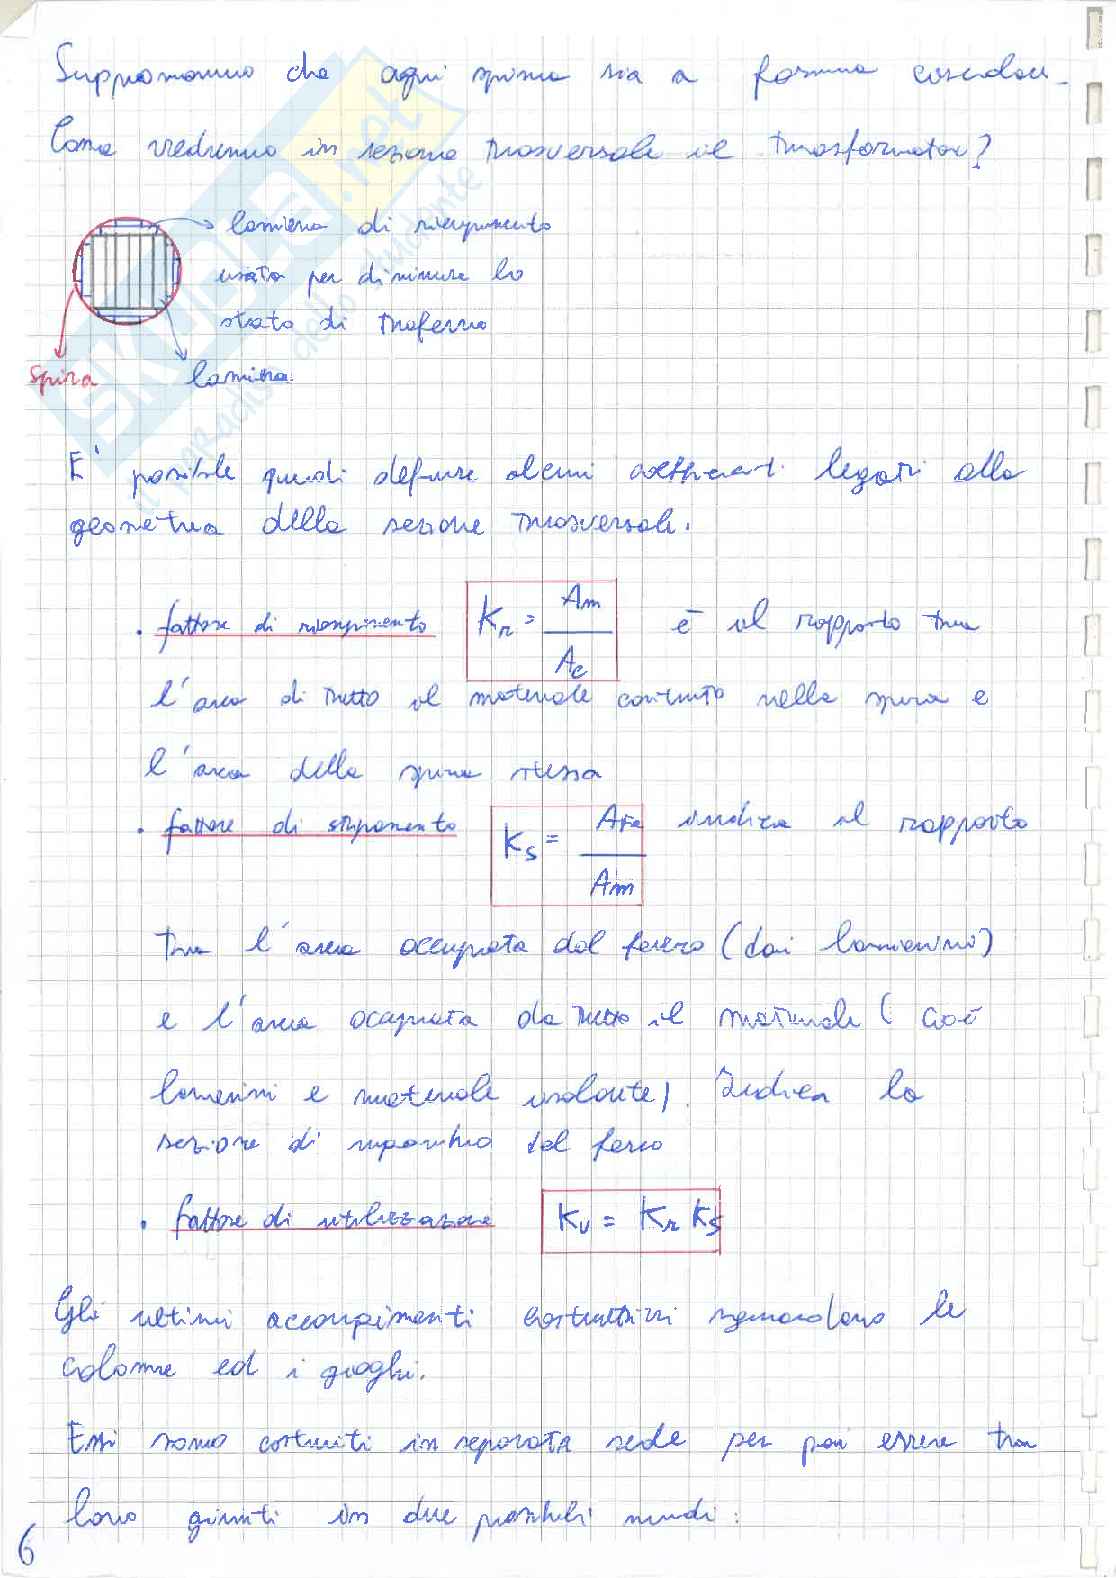 Supponiamo che ogni spira sia a forma circolare.
Come vedremo in sezione trasversale il trasformatore?
lamiera di riempimento
usata per diminuire lo
strato di traferro
Spira
lamiera
E' possibile quindi definire alcuni coefficienti legati alla
geometria della sezione trasversale.
• fattore di riempimento Kr = Am / Ac è il rapporto tra
l'area di tutto il materiale contenuto nella spira e
l'area della spira stessa
• fattore di stipamento Ks = AFe / Am indica il rapporto
tra l'area occupata dal ferro (dai lamierini)
e l'area occupata da tutto il materiale (cioè
lamierini e materiale isolante). Indica la
sezione di del ferro
• fattore di utilizzazione Ku = Kr Ks
Gli ultimi accorgimenti costruttivi riguardano le
colonne ed i gioghi.
Essi sono costruiti in separata sede per poi essere tra
loro giunti in due possibili modi:
6
SKUOLA.net
il paradiso dello studente